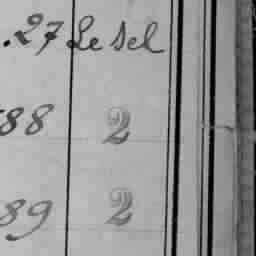 .27 Le sel
88 2
89 2